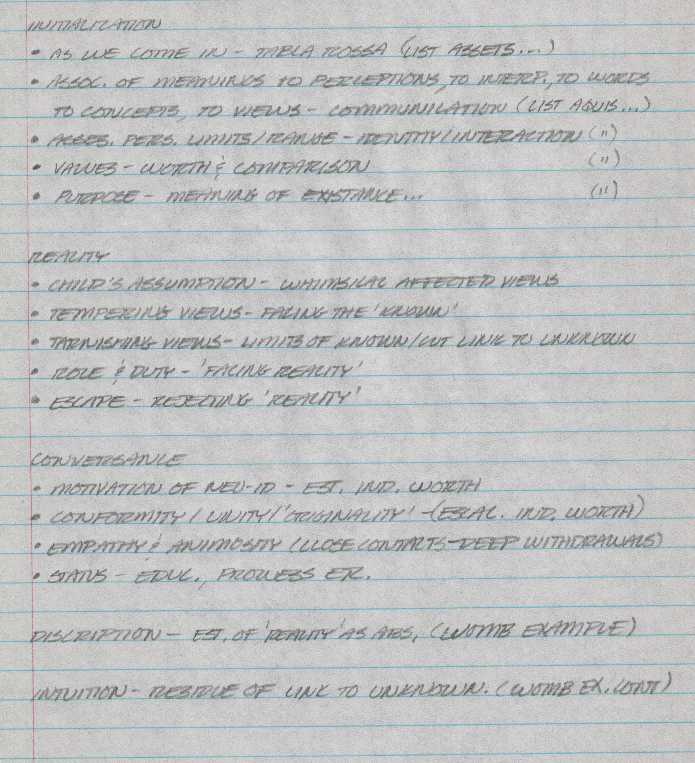 INITIALIZATION
• AS WE COME IN - TABLA ROSSA (LIST ASSETS...)
• ASSOC. OF MEANINGS TO PERCEPTIONS, TO INTERP, TO WORDS
TO CONCEPTS, TO VIEWS - COMMUNICATION (LIST AQUIS...)
• ASSES. PERS. LIMITS/RANGE - IDENTITY/INTERACTION (")
• VALUES - WORTH & COMPARISON (")
• PURPOSE - MEANING OF EXISTANCE... (")
REALITY
• CHILD'S ASSUMPTION - WHIMSICAL AFFECTED VIEWS
• TEMPERING VIEWS - FACING THE 'KNOWN'
• TARNISHING VIEWS - LIMITS OF KNOWN/CUT LINK TO UNKNOWN
• ROLE & DUTY - 'FACING REALITY'
• ESCAPE - REJECTING 'REALITY'
CONVERSANCE
• MOTIVATION OF NEU-ID - EST. IND. WORTH
• CONFORMITY / UNITY / 'ORIGINALITY' - (ESCAL. IND. WORTH)
• EMPATHY & ANIMOSITY (CLOSE CONTACTS - DEEP WITHDRAWALS)
• STATUS - EDUC., PROWESS ETC.
DISCRIPTION - EST. OF 'REALITY' AS ABS. (WOMB EXAMPLE)
INTUITION - RESIDUE OF LINK TO UNKNOWN. (WOMB EX. CONT)